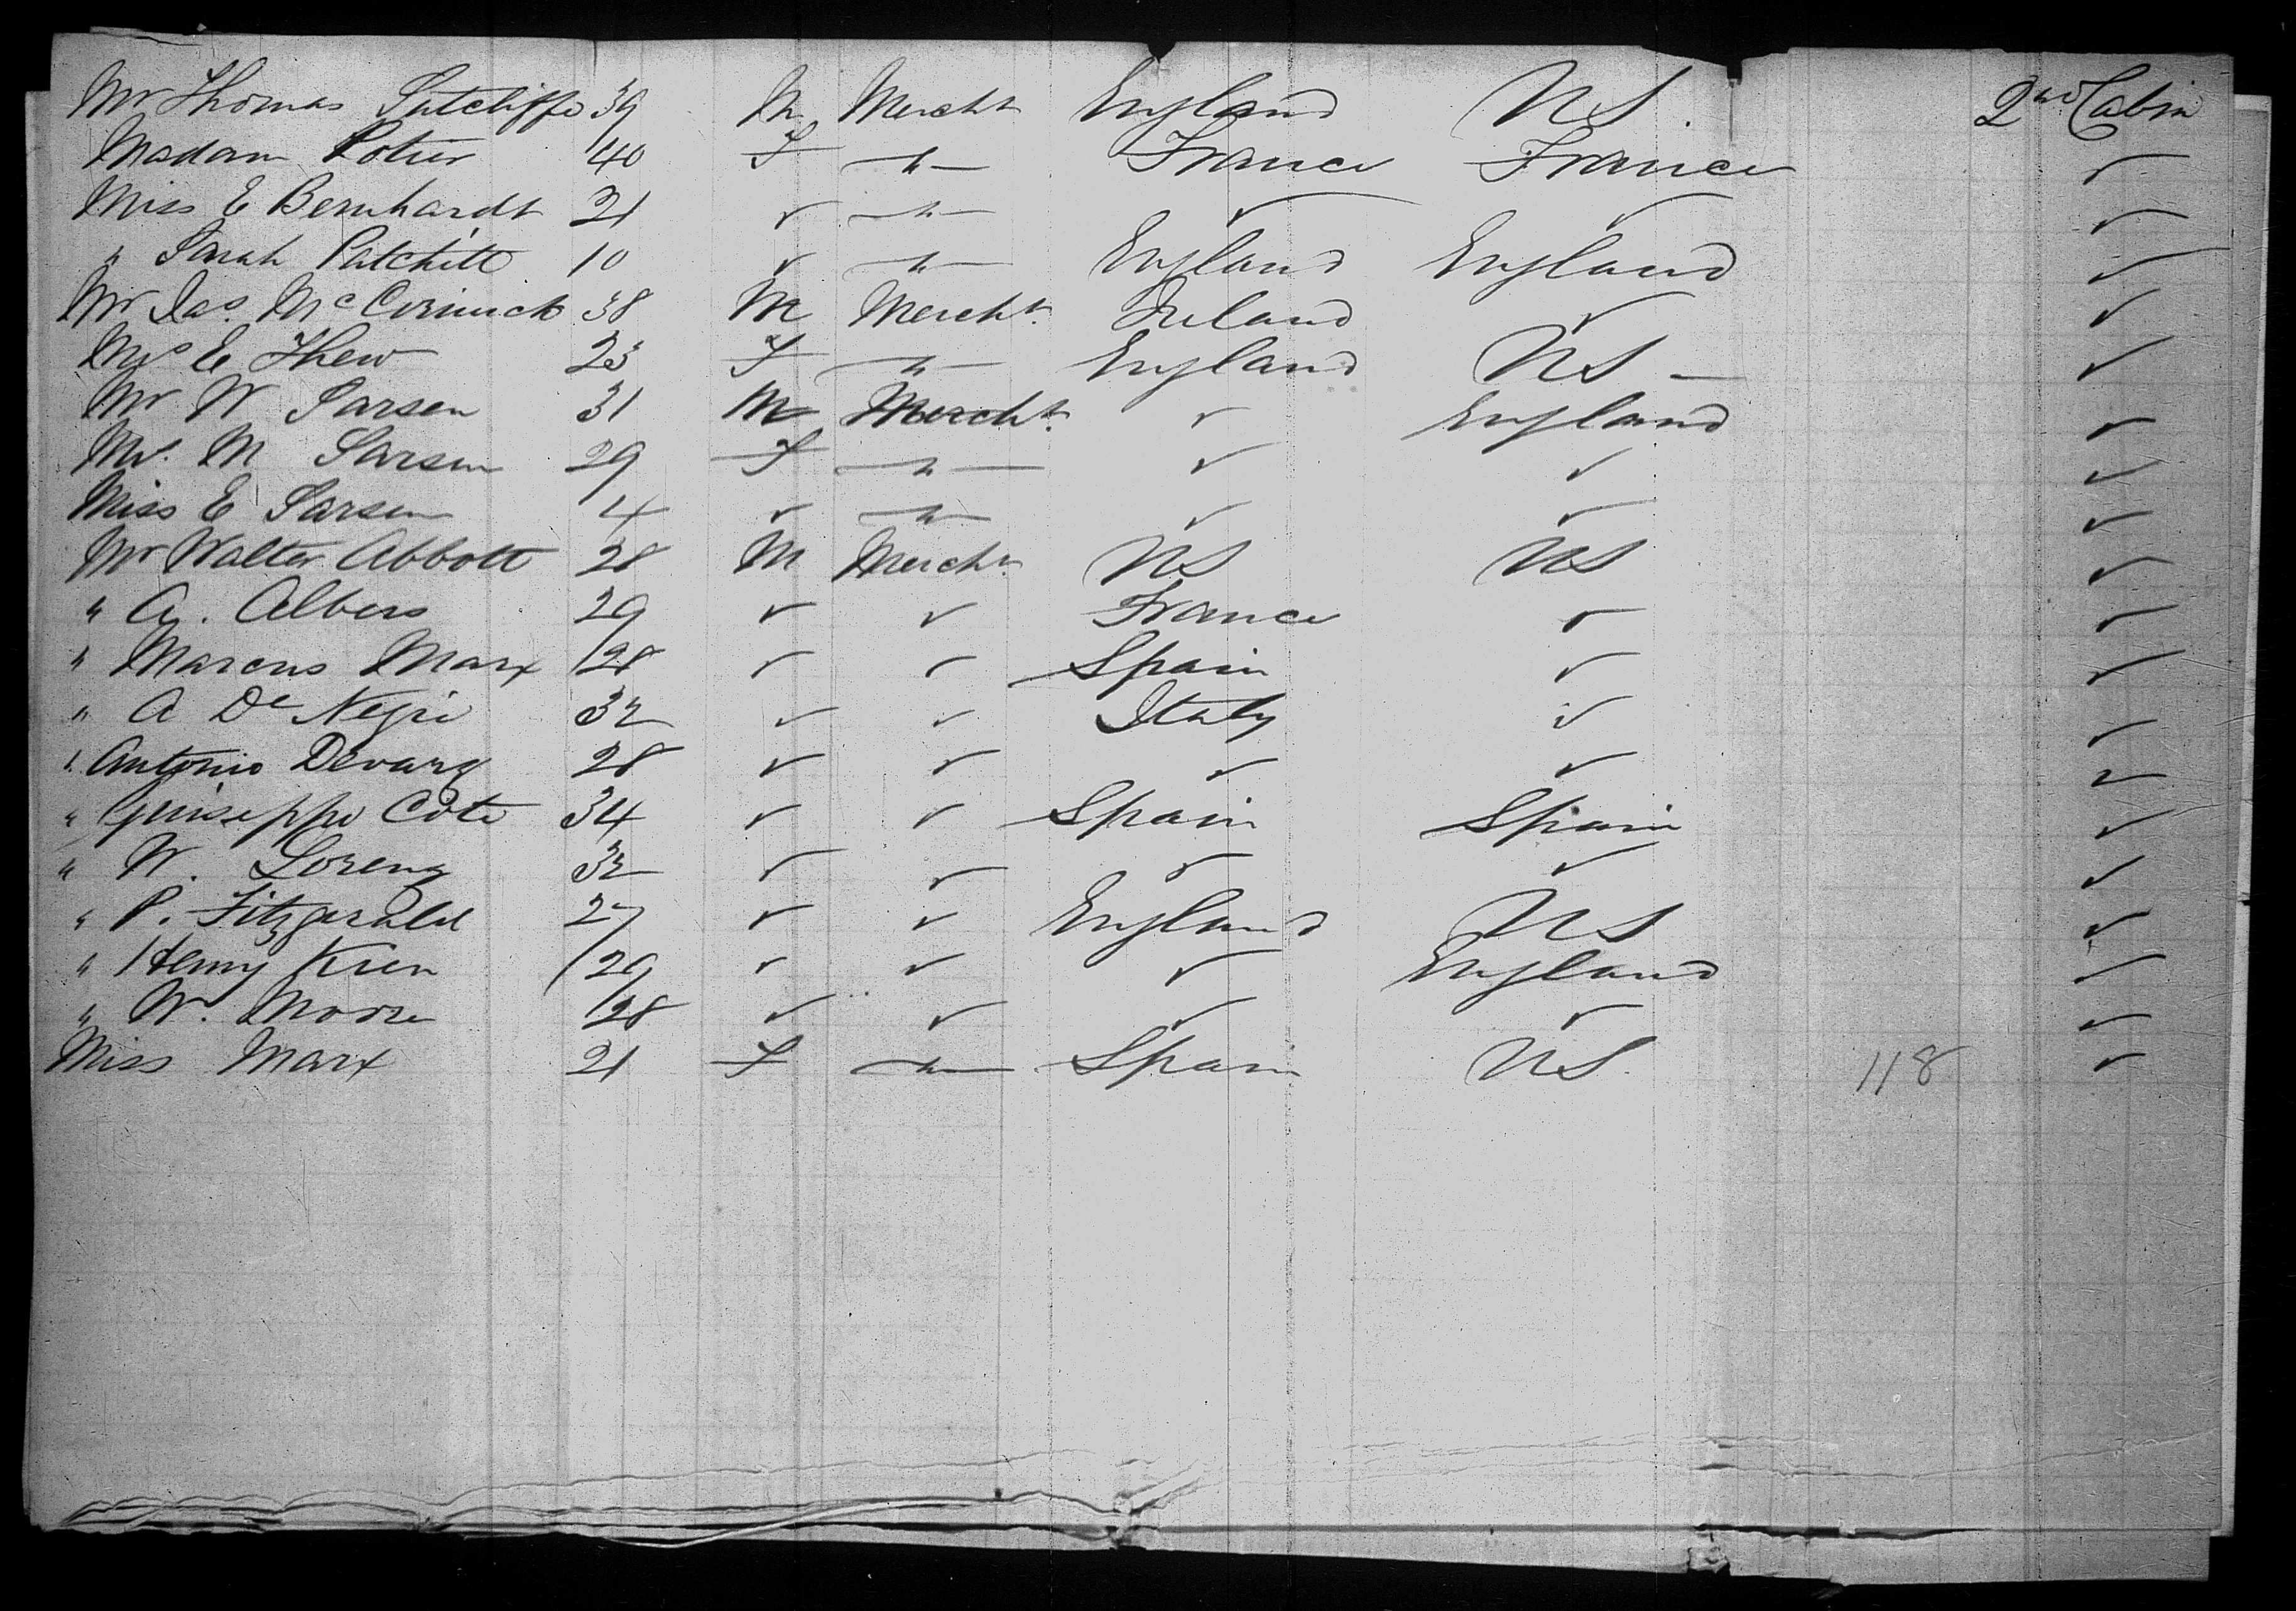 Mr Thomas Sutcliffe 39 M Mercht England US. 2nd Cabin
Madam Potier 40 F —"— France France ✓
Miss E Bernhardt 21 ✓ —"— ✓ ✓ ✓
" Sarah Patchett 10 ✓ —"— England England ✓
Mr Jas. McCormick 38 M Mercht. Ireland ✓ ✓
Mrs E Thew 23 F —"— England US — ✓
Mr W Larsen 31 M Mercht. ✓ England ✓
Mrs. M Larsen 29 F —"— ✓ ✓ ✓
Miss E Larsen 4 ✓ —"— ✓ ✓ ✓
Mr Walter Abbott 28 M Mercht. US US ✓
" A. Albers 29 ✓ ✓ France ✓ ✓
" Marcus Marx 28 ✓ ✓ Spain ✓ ✓
" A De Negri 32 ✓ ✓ Italy ✓ ✓
" Antonio 28 ✓ ✓ ✓ ✓ ✓
" Guiseppe 34 ✓ ✓ Spain Spain ✓
" W. Lorenz 32 ✓ ✓ ✓ ✓ ✓
" P. Fitzgerald 27 ✓ ✓ England US ✓
" Henry 29 ✓ ✓ ✓ England ✓
" W. Moore 28 ✓ ✓ ✓ ✓ ✓
Miss Marx 21 F —"— Spain US. 118 ✓